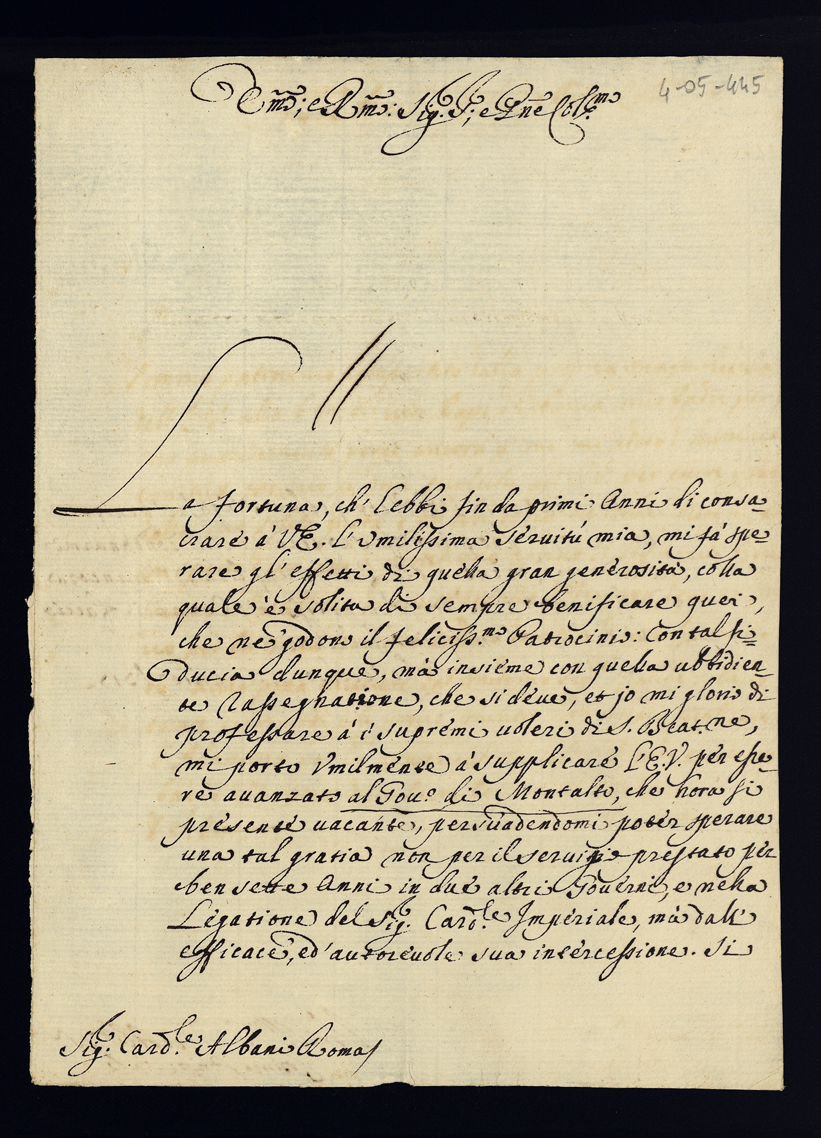 4-05-445
Em̃o; e Rm̃o: Sig. S.; e Pñe Col.mo
La fortuna, ch' l'ebbi fin da primi Anni di consa=
crare á V.E. l'Vmilissima servitú mia, mi fá spe=
rare gl'effetti di quella gran generositá, colla
quale é solita di sempre benificare quei,
che ne godono il feliciss.mo Patrocinio: Con tal fi=
ducia dunque, má insieme con quella ubbidien=
te rassegnatione, che si deve, et jo mi glorio di
professare á i supremi voleri di S. Beat.ne,
mi porto Vmilmente á supplicare l'E.V. per esse=
re avanzato al Gou.o di Montalto, che hora si
presente vacante, persuadendomi poter sperare
una tal gratia non per il servigio prestato per
ben sette Anni in due altri Governi, e nella
Legatione del Sig. Card.le Imperiale, má dall'
efficace, ed' autorevole sua intercessione. Si
Sig. Card.le Albani Roma